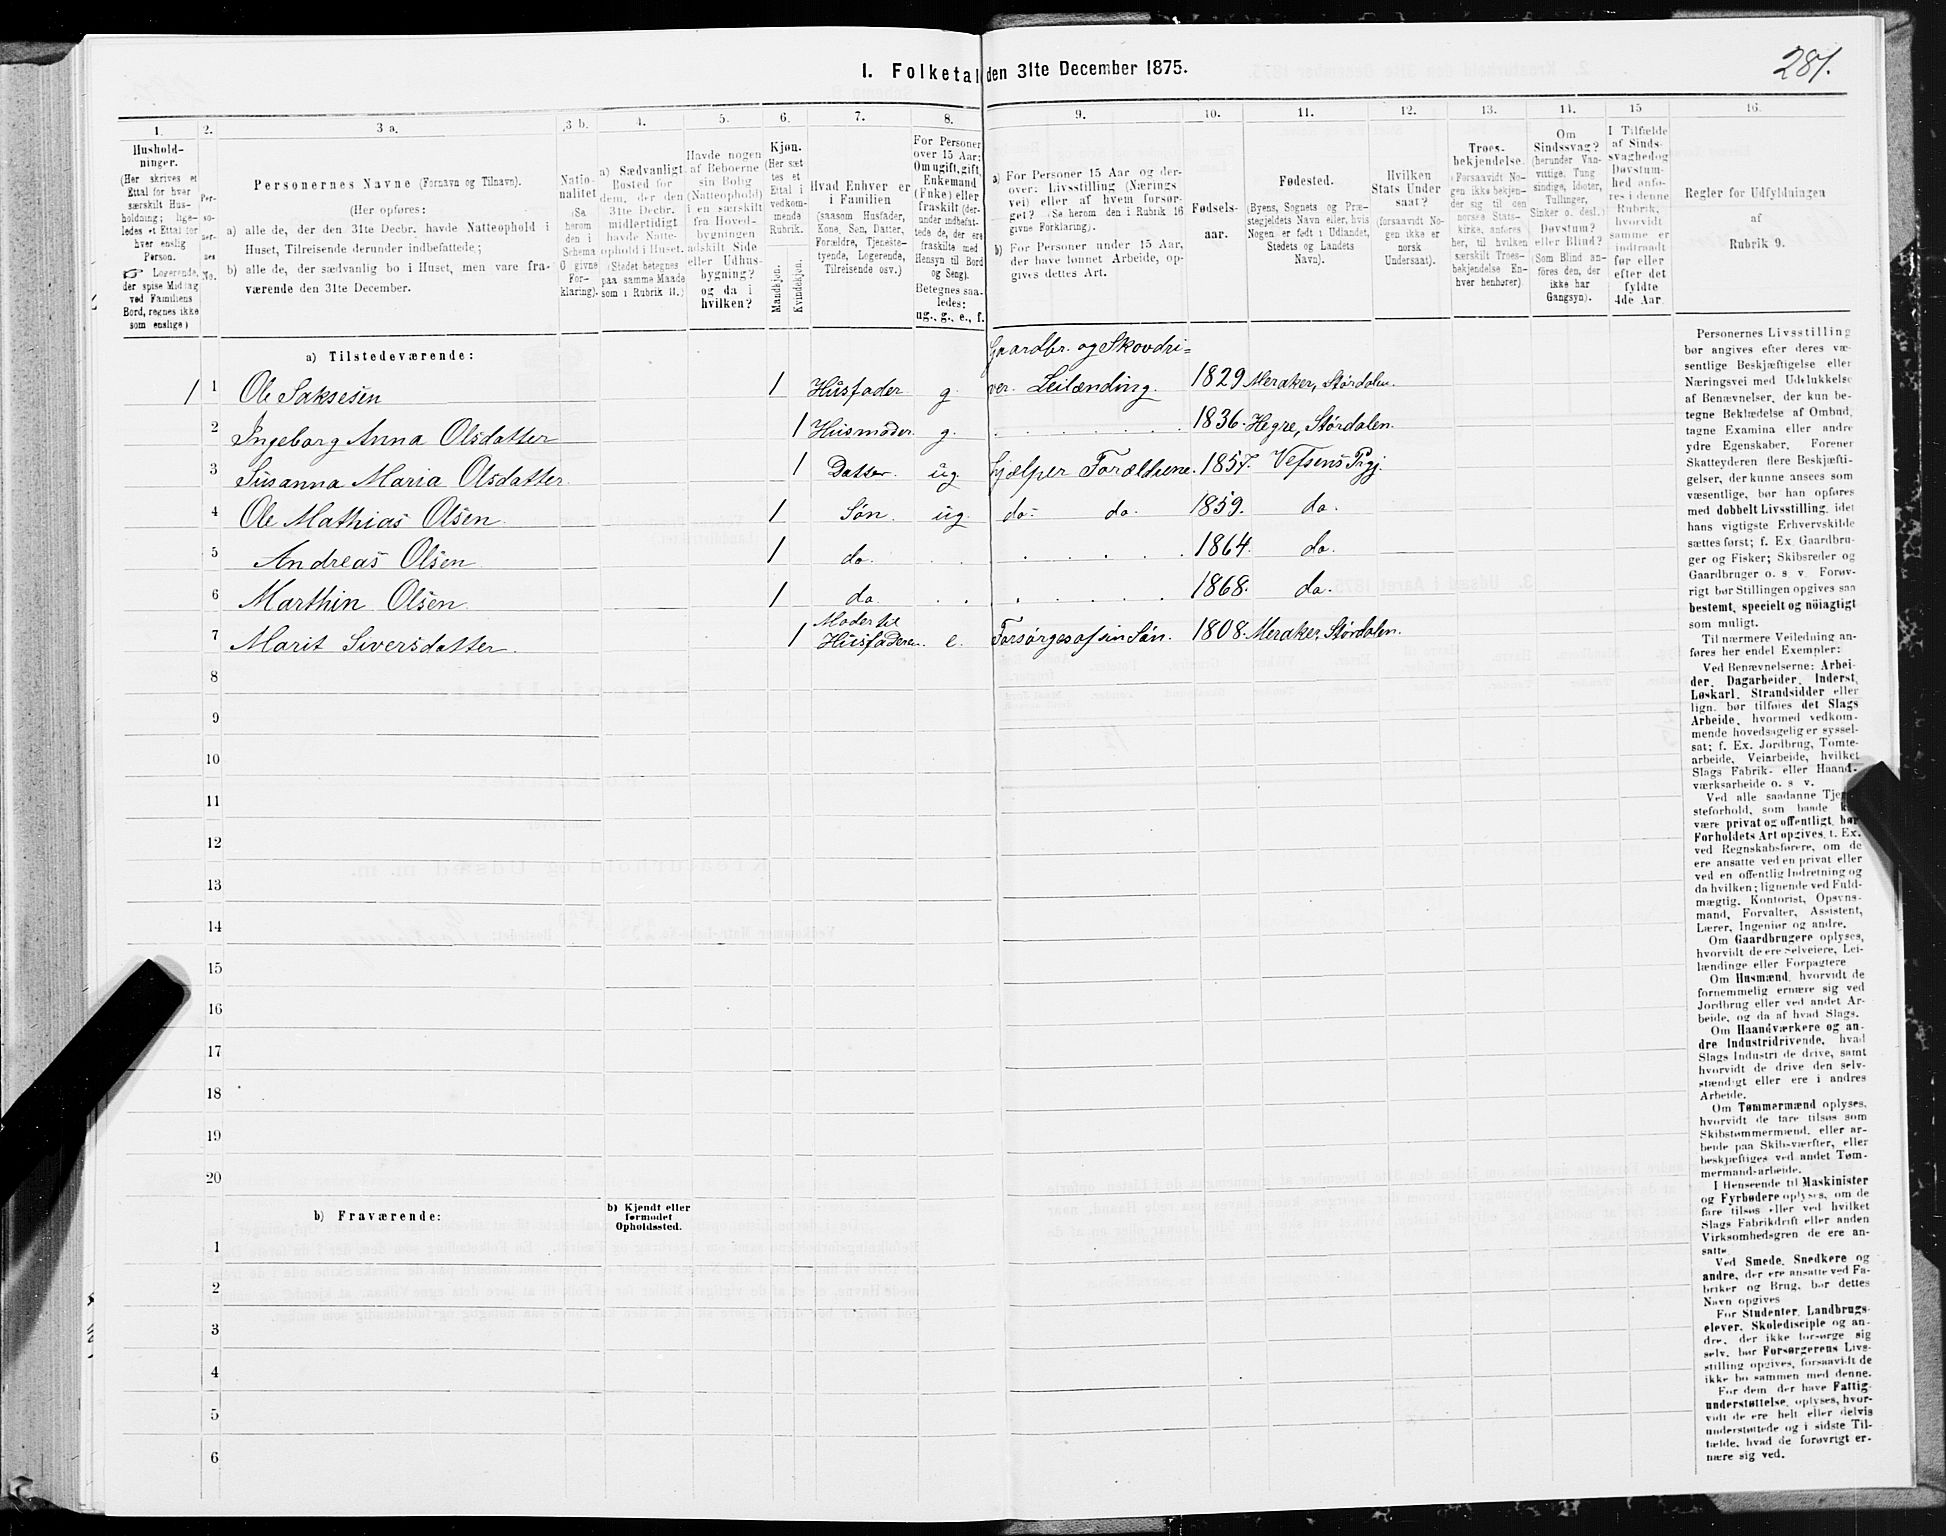 I. Folketal den 31te December 1875.
281.
1.
2.
3 a.
3 b.
4.
5.
6.
7.
8.
9.
10.
11.
12.
13.
14.
15
16.
Hushold-
ninger.
(Her skrives et
Ettal for hver
særskilt Hus-
holdning; lige-
ledes et Ettal for
hver enslig
Person.
☞ Logerende,
der spise Middag
ved Familiens
Bord, regnes ikke
som enslige)
Per-
so-
ner-
nes
No.
Personernes Navne (Fornavn og Tilnavn).
(Her opføres:
a) alle de, der den 31te Decbr. havde Natteophold i
Huset, Tilreisende derunder indbefattede;
b) alle de, der sædvanlig bo i Huset, men vare fra-
værende den 31te December.
Natio-
nalitet
(Se
herom
den i
Schema
0 givne
For-
klaring).
a) Sædvanligt
Bosted for
dem, der den
31te Decbr.
midlertidigt
havde Natte-
ophold i Huset.
(Stedet betegnes
paa samme Maade
som i Rubrik 11.)
Havde nogen
af Beboerne
sin Bolig
(Natteophold)
i en særskilt
fra Hoved-
bygningen
adskilt Side
eller Udhus-
bygning?
og da i
hvilken?
Kjøn.
(Her sæt
tes et
Ettal i
vedkom-
mende
Rubrik.
Mandkjøn.
Kvindekjøn.
Hvad Enhver er
i Familien
(saasom Husfader,
Kone, Søn, Datter,
Forældre, Tjeneste-
tyende, Logerende,
Tilreisende osv.)
For Personer
over 15 Aar:
Om ugift, gift,
Enkemand
(Enke) eller
fraskilt (der-
under indbefat-
tede de, der ere
fraskilte med
Hensyn til Bord
og Seng).
Betegnes saa-
ledes:
ug., g., e., f.
a) For Personer 15 Aar og der-
over: Livsstilling (Nærings
vei) eller af hvem forsør-
get? (Se herom den i Rubrik 16
givne Forklaring).
b) For Personer under 15 Aar,
der have lønnet Arbeide, op-
gives dettes Art.
Fødsels-
aar.
Fødested.
(Byens, Sognets og Præ-
stegjeldets Navn eller, hvis
Nogen er født i Udlandet,
Stedets og Landets
Navn).
Hvilken
Stats Under
saat?
(forsaavidt No-
gen ikke er
norsk
Undersaat).
Troes-
bekjendelse.
(Forsaavidt No-
gen ikke bekjen-
der sig til den
norske Stats-
kirke, anføres
her, til hvilken
særskilt Troes-
bekjendelse En-
hver henhører).
Om
Sindssvag?
(herunder Van-
vittige, Tung
sindige, Idioter,
Tullinger,
Sinker o. desl.)
Døvstum?
eller Blind?
(Som Blind an-
føres den, der
ikke har
Gangsyn).
I Tilfælde
af Sinds-
svaghed og
Døvstum-
hed anfø-
res i denne
Rubrik,
hvorvidt
samme er
indtraadt
før eller
efter det
fyldte
4de Aar.
Regler for Udfyldningen
af
Rubrik 9.
a) Tilstedeværende:
Gaardbr. og Skovdri=
1 1 Ole Saksesen 1 Husfader g. ver. Leilænding. 1829 Meraker, Størdalen.
2 Ingeborg Anna Olsdatter 1 Husmoder g. 1836. Hegre, Størdalen.
3 Susanna Maria Olsdatter 1 Datter. ug. Hjælper Forældrene. 1857. Vefsens Prgj.
4 Ole Mathias Olsen 1 Søn. ug. do. do. 1859. do.
5 Andreas Olsen 1 do. 1864. do.
6 Marthin Olsen 1 do. 1868. do.
Moder til
7 Marit Siversdatter. 1 Husfaderen. e. Forsørges af sin Søn. 1808. Meraker, Størdalen.
8
9
10
11
12
13
14
15
16
17
18
19
20
b) Fraværende:
b) Kjendt eller
formodet
Opholdssted.
1
2
3
4
5
6
Personernes Livsstilling
bør angives efter deres væ-
sentlige Beskjæftigelse eller
Næringsvei med Udelukkelse
af Benævnelser, der kun be-
tegne Beklædelse af Ombud,
tagne Examina eller andre
ydre Egenskaber. Forener
Skatteyderen flere Beskjæfti-
gelser, der kunne ansees som
væsentlige, bør han opføres
med dobbelt Livsstilling, idet
hans vigtigste Erhvervskilde
sættes først; f. Ex. Gaardbru-
ger og Fisker; Skibsreder og
Gaardbruger o. s. v. Forøv-
rigt bør Stillingen opgives saa
bestemt, specielt og nöiagtigt
som muligt.
Til nærmere Veiledning an-
føres her endel Exempler:
Ved Benævnelserne: Arbei-
der, Dagarbeider, Inderst,
Løskarl, Strandsidder eller
lign. bør tilføies det Slags
Arbeide, hvormed vedkom-
mende hovedsagelig er syssel-
sat; f. Ex. Jordbrug, Tomte-
arbeide, Veiarbeide, hvilket
Slags Fabrik- eller Haand-
værksarbeide o. s. v.
Ved alle saadanne Tjene-
steforhold, som baade
være privat og offentligt, bør
Forholdets Art opgives, t. Ex.
ved Regnskabsførere, om de
ere ansatte ved en privat eller
ved en offentlig Indretning og
da hvilken; lignende ved Fuld-
mægtig, Kontorist, Opsyns-
mand, Forvalter, Assistent,
Lærer, Ingeniør og andre.
Om Gaardbrugere oplyses,
hvorvidt de ere Selveiere, Lei-
lændinge eller Forpagtere
Om Husmænd, hvorvidt de
fornemmelig ernære sig ved
Jordbrug eller ved andet Ar-
beide, og da af hvad Slags.
Om Haandværkere og an-
dre Industridrivende, hvad
Slags Industri de drive, samt
hvorvidt de drive den selv-
stændigt eller ere i andres
Arbeide.
Om Tømmermænd oplyses,
hvorvidt de fare tilsøs som
Skibstømmermænd, eller ar-
beide paa Skibsværfter, eller
beskjæftiges ved andet Tøm-
mermand-arbeide.
I Henseende til Maskinister
og Fyrbødere oplyses, om de
fare tilsøs eller ved hvilket
Slags Fabrikdrift eller anden
Virksomhedsgren de ere an-
satte
Ved Smede, Snedkere og
andre, der ere ansatte ved Fa-
briker og Brug, bør dettes
Navn opgives
For Studenter, Landbrugs-
elever, Skoledisciple og an-
dre, der ikke forsørge sig
selv, bør Forsørgerens Livs-
stilling opgives, forsaavidt de
ikke bo sammen med denne.
For dem der have Fattig-
understøttelse, oplyses, hvor-
vidt de ere helt eller delvis
understøttede og i sidste Til-
fælde, hvad de forøvrigt er-
nære sig ved.